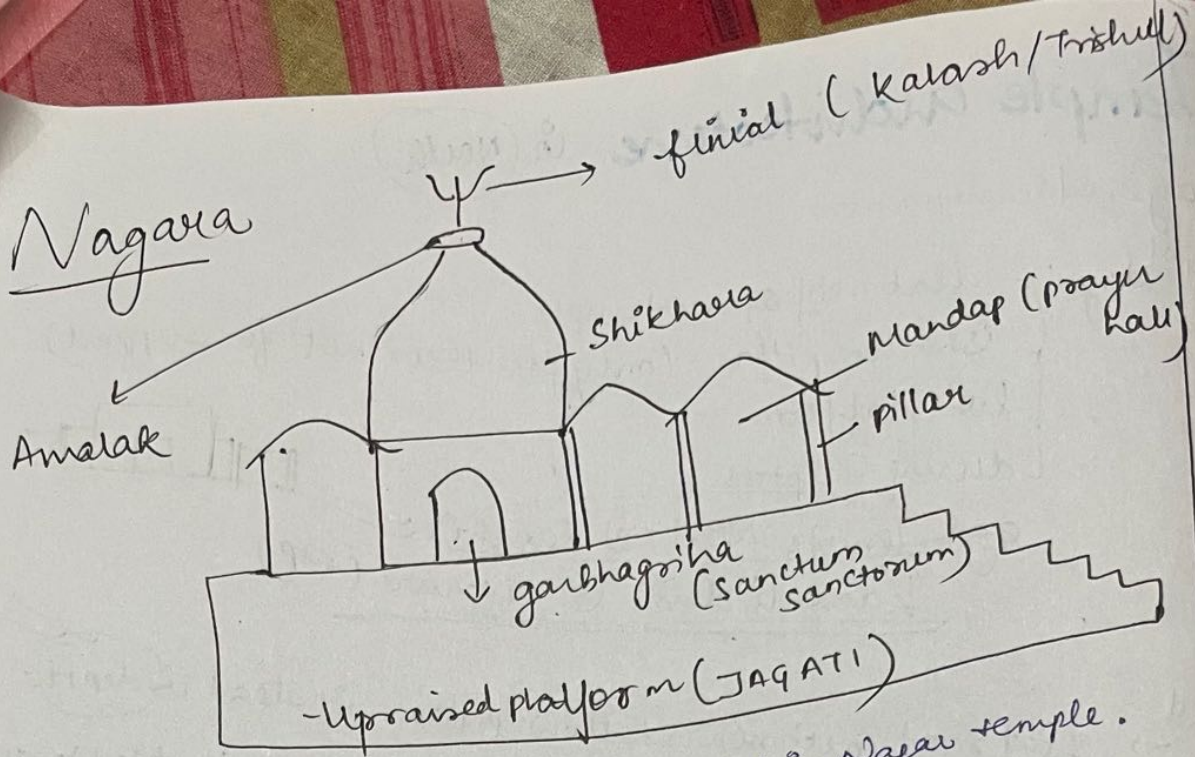 finial (Kalash/Trishul)
Nagara
Shikhara
Mandap (prayer
hall)
pillar
Amalak
garbhagriha
(Sanctum
sanctorum)
-Upraised platform (JAGATI)
Nagar temple.